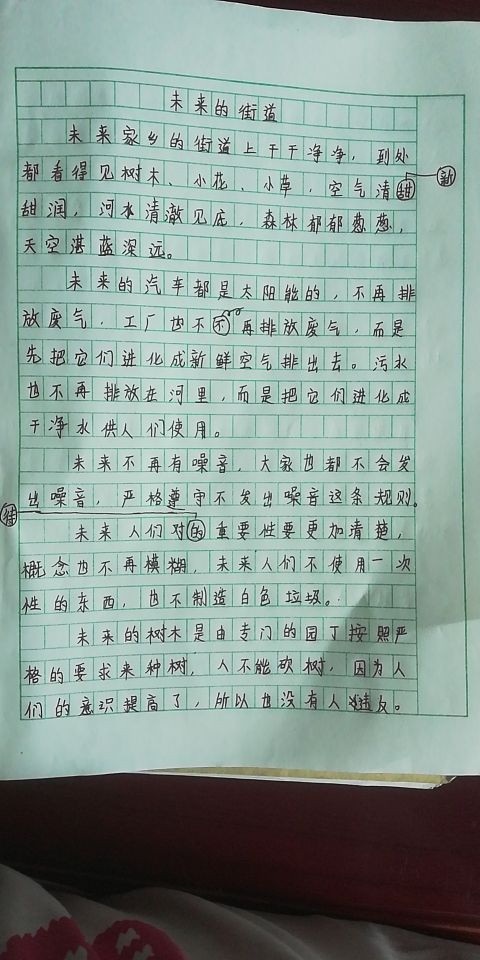 未来的街道
未来家乡的街道上干干净净，到处
都看得见树木、小花、小草，空气清甜新
甜润，河水清澈见底，森林郁郁葱葱，
天空湛蓝深远。
未来的汽车都是太阳能的，不再排
放废气，工厂也不不再排放废气，而是
先把它们进化成新鲜空气排出去。污水
也不再排放在河里，而是把它们进化成
干净水供人们使用。
未来不再有噪音，大家也都不会发
出噪音，严格遵守不发出噪音这条规则。
未来人们对的重要性要更加清楚，
概念也不再模糊，未来人们不使用一次
性的东西，也不制造白色垃圾。
未来的树木是由专门的园丁按照严
格的要求来种树，人不能砍树，因为人
们的意识提高了，所以也没有人违反。